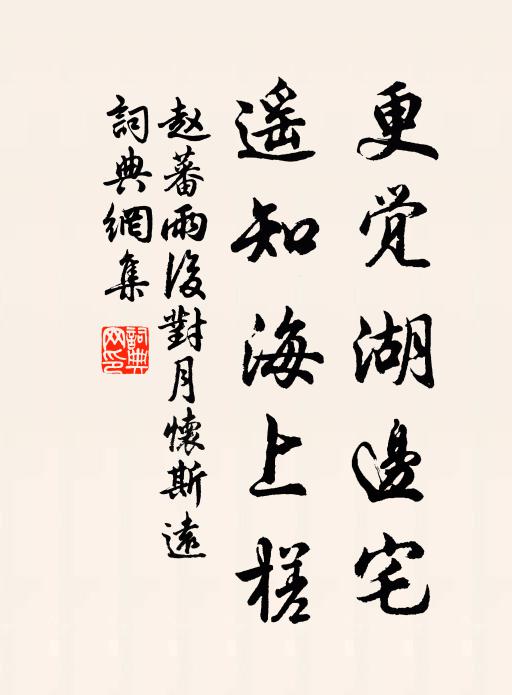 更觉湖邊宅
遥知海上槎
赵蕃雨後對月懷斯遠
詞典網集
詞典网印